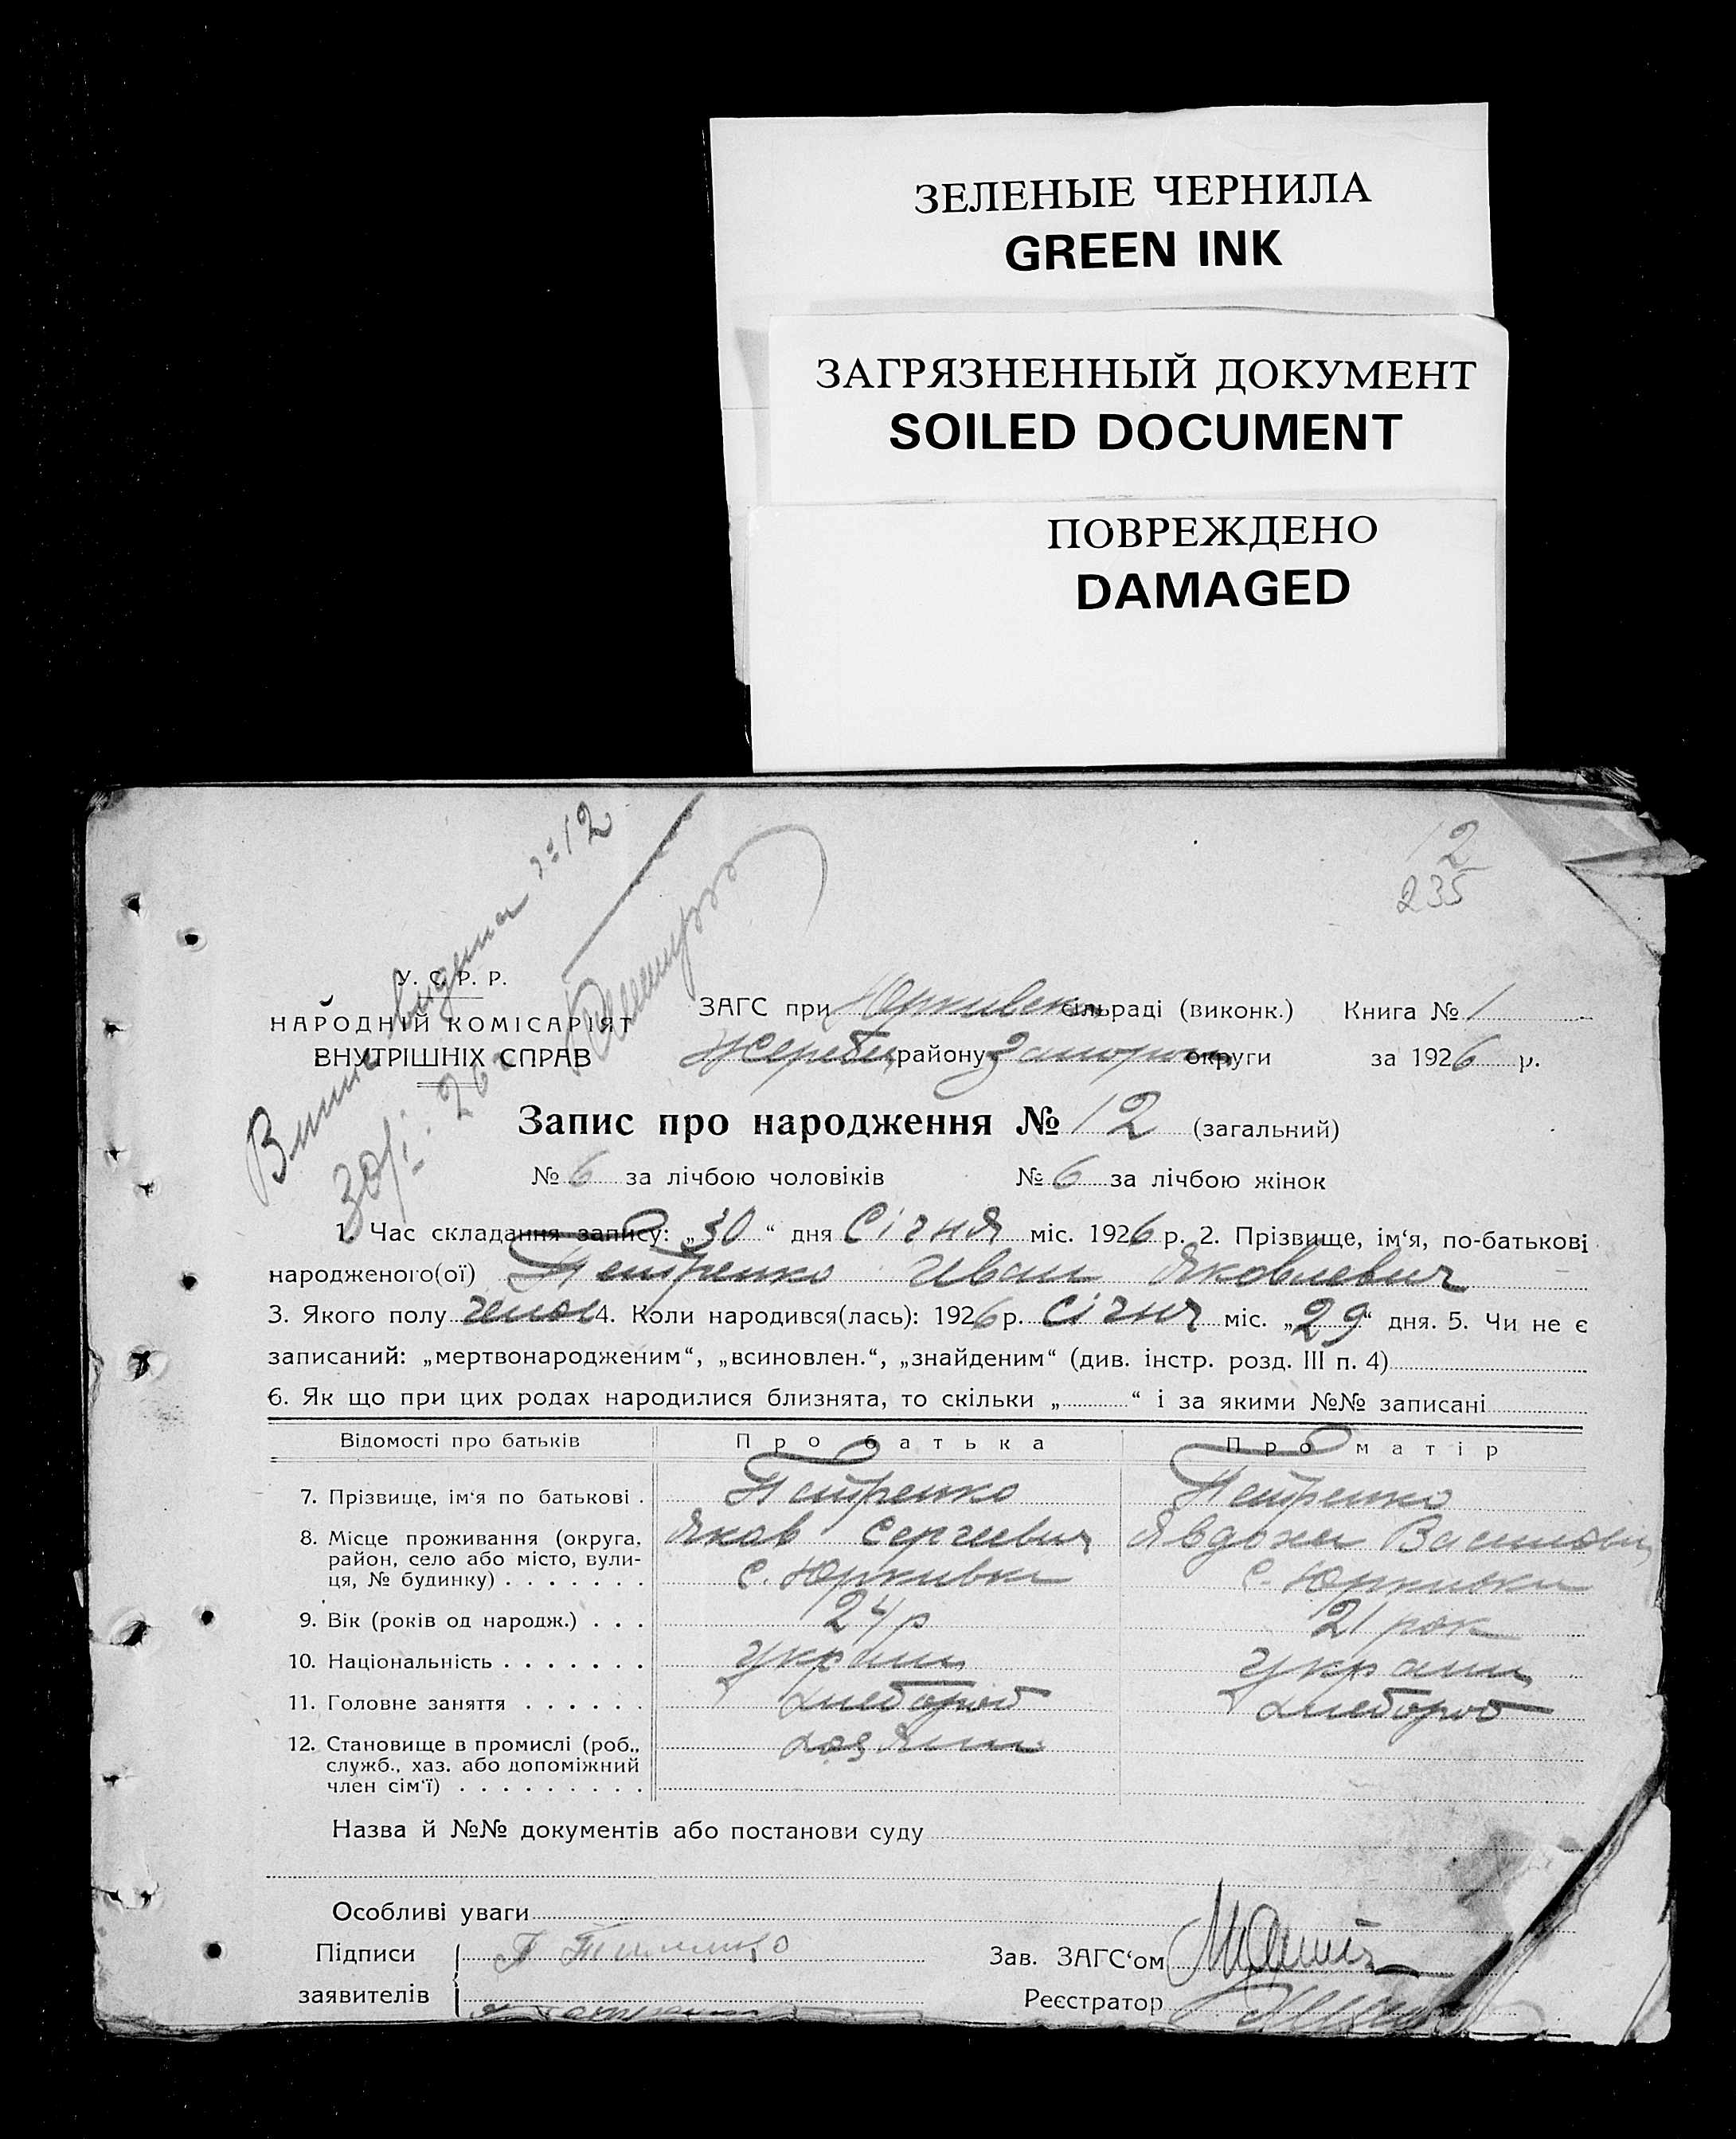 ЗЕЛЕНЫЕ ЧЕРНИЛА
GREEN INK
ЗАГРЯЗНЕННЫЙ ДОКУМЕНТ
SOILED DOCUMENT
ПОВРЕЖДЕНО
DAMAGED
12
235
видана №12
У. С. Р. Р.
НАРОДНІЙ КОМІСАРІЯТ
ВНУТРІШНІХ СПРАВ
ЗАГС при Юркивск сільраді (виконк.) Книга № 1
Жеребец району Запорож округи за 1926 р.
Запис про народження № 12 (загальний)
№ 6 за лічбою чоловіків № 6 за лічбою жінок
1. Час складання запису: „30“ дня Січня міс. 1926 р. 2. Прізвище, ім‘я, по-батькові
народженого(ої) Петренко Иван Яковлевич
3. Якого полу 4. Коли народився(лась): 1926 р. Січня міс. „29“ дня. 5. Чи не є
записаний: „мертвонародженим“, „всиновлен.“, „знайденим“ (див. інстр. розд. III п. 4)
6. Як що при цих родах народилися близнята, то скільки „ “ і за якими №№ записані
Відомості про батьків Про батька Про матір
7. Прізвище, ім‘я по батькові . Петренко Петренко
8. Місце проживання (округа, Яков Сергеевич Явдоха Василовн
район, село або місто, вули-
ця, № будинку) . . . . . . . с. Юркивка с. Юркивка
9. Вік (років од народж.) . . . 24 р 21 рок
10. Національність . . . . . . . украин украин
11. Головне заняття . . . . . . хлебороб хлебороб
12. Становище в промислі (роб., хозяин
служб., хаз. або допоміжний
член сім‘ї) . . . . . . . . .
Назва й №№ документів або постанови суду
Особливі уваги
Підписи Зав. ЗАГС‘ом
заявителів Реєстратор